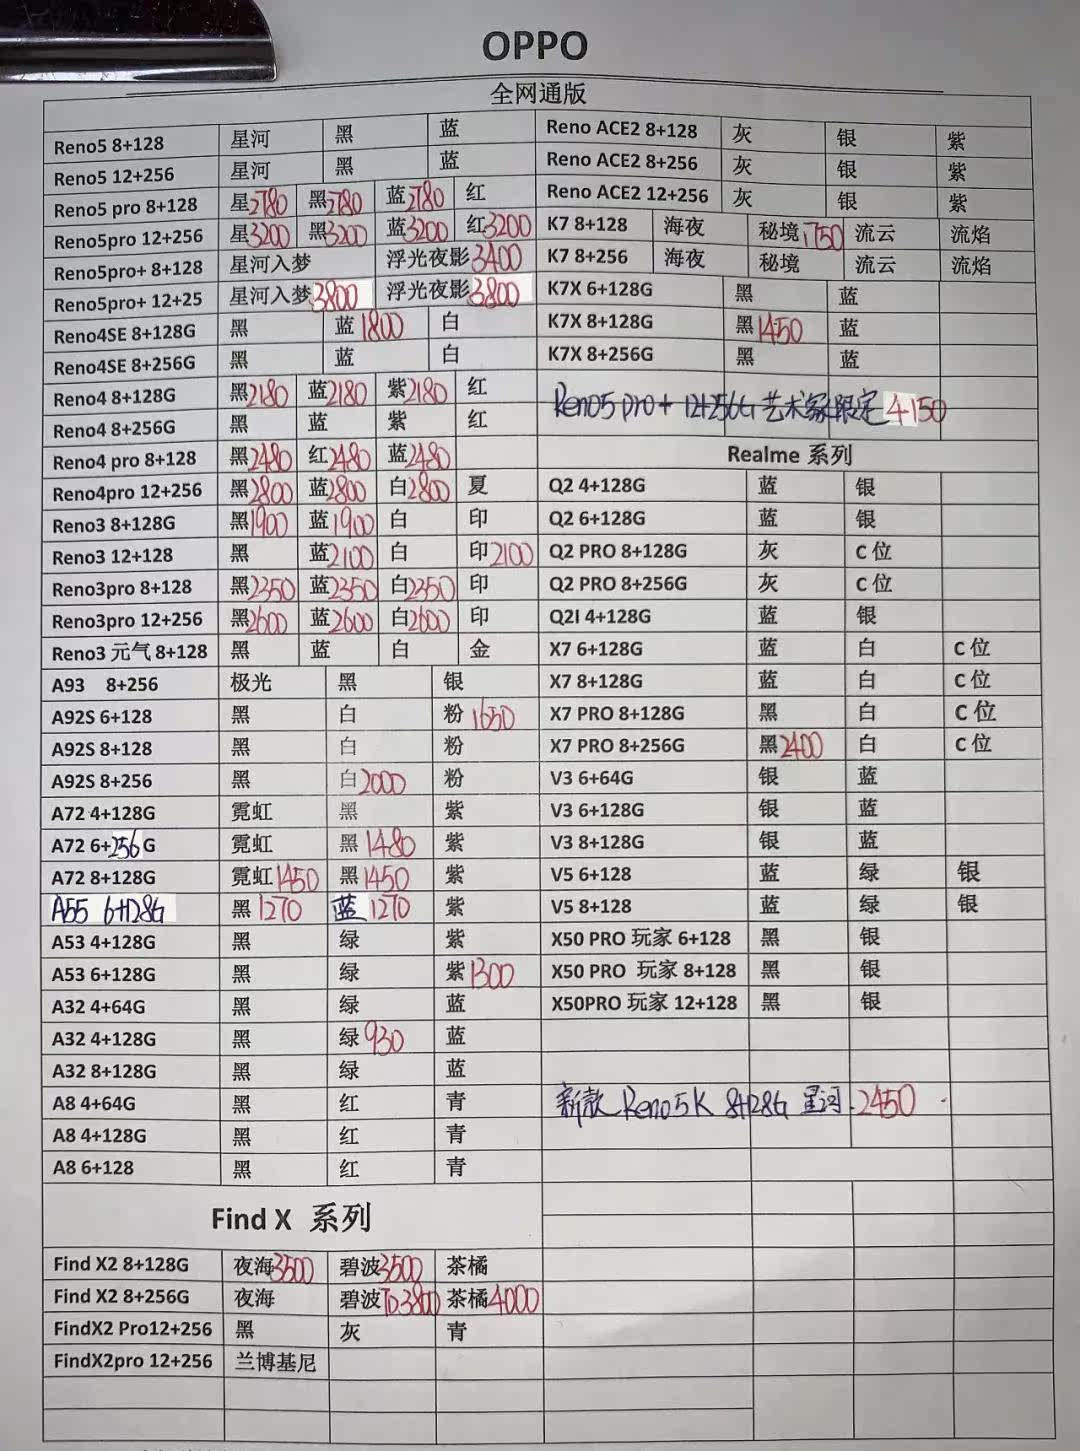 OPPO
全网通版
Reno5 8+128 星河 黑 蓝
Reno5 12+256 星河 黑 蓝
Reno5 pro 8+128 星2780 黑2780 蓝2180 红
Reno5pro 12+256 星3200 黑3200 蓝3200 红3200
Reno5pro+ 8+128 星河入梦 浮光夜影3400
Reno5pro+ 12+25 星河入梦3800 浮光夜影3800
Reno4SE 8+128G 黑 蓝1800 白
Reno4SE 8+256G 黑 蓝 白
Reno4 8+128G 黑2180 蓝2180 紫2180 红
Reno4 8+256G 黑 蓝 紫 红
Reno4 pro 8+128 黑2480 红2480 蓝2480
Reno4pro 12+256 黑2800 蓝2800 白2800 夏
Reno3 8+128G 黑1900 蓝1900 白 印
Reno3 12+128 黑 蓝2100 白 印2100
Reno3pro 8+128 黑2350 蓝2350 白2350 印
Reno3pro 12+256 黑2600 蓝2600 白2600 印
Reno3 元气 8+128 黑 蓝 白 金
A93 8+256 极光 黑 银
A92S 6+128 黑 白 粉1650
A92S 8+128 黑 白 粉
A92S 8+256 黑 白2000 粉
A72 4+128G 霓虹 黑 紫
A72 6+256G 霓虹 黑1480 紫
A72 8+128G 霓虹1450 黑1450 紫
A55 6+128G 黑1270 蓝1270 紫
A53 4+128G 黑 绿 紫
A53 6+128G 黑 绿 紫1300
A32 4+64G 黑 绿 蓝
A32 4+128G 黑 绿930 蓝
A32 8+128G 黑 绿 蓝
A8 4+64G 黑 红 青
A8 4+128G 黑 红 青
A8 6+128 黑 红 青
Find X 系列
Find X2 8+128G 夜海3500 碧波3500 茶橘
Find X2 8+256G 夜海 碧波TD3800 茶橘4000
FindX2 Pro12+256 黑 灰 青
FindX2pro 12+256 兰博基尼
Reno ACE2 8+128 灰 银 紫
Reno ACE2 8+256 灰 银 紫
Reno ACE2 12+256 灰 银 紫
K7 8+128 海夜 秘境1750 流云 流焰
K7 8+256 海夜 秘境 流云 流焰
K7X 6+128G 黑 蓝
K7X 8+128G 黑1450 蓝
K7X 8+256G 黑 蓝
Reno5 pro+ 12+256G 艺术家限定 4150
Realme 系列
Q2 4+128G 蓝 银
Q2 6+128G 蓝 银
Q2 PRO 8+128G 灰 C 位
Q2 PRO 8+256G 灰 C 位
Q2I 4+128G 蓝 银
X7 6+128G 蓝 白 C 位
X7 8+128G 蓝 白 C 位
X7 PRO 8+128G 黑 白 C 位
X7 PRO 8+256G 黑2400 白 C 位
V3 6+64G 银 蓝
V3 6+128G 银 蓝
V3 8+128G 银 蓝
V5 6+128 蓝 绿 银
V5 8+128 蓝 绿 银
X50 PRO 玩家 6+128 黑 银
X50 PRO 玩家 8+128 黑 银
X50PRO 玩家 12+128 黑 银
新款 Reno5K 8+128G 星河 2450